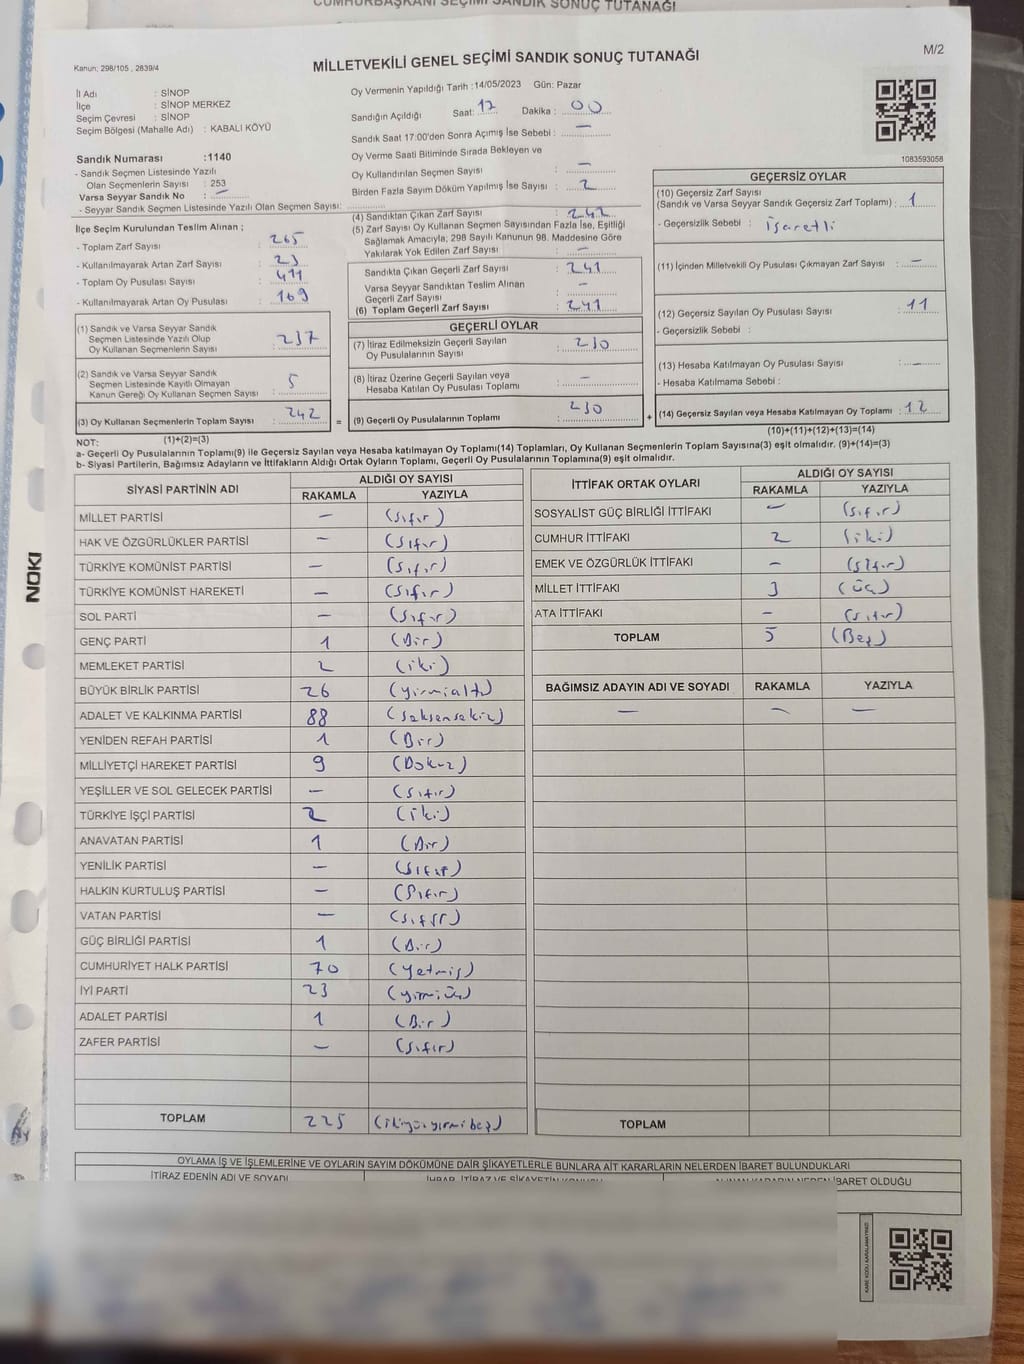 CUMHURBAŞKANI SEÇİMİ SANDIK SONUÇ TUTANAĞI
M/2
Kanun; 298/105 , 2839/4
MİLLETVEKİLİ GENEL SEÇİMİ SANDIK SONUÇ TUTANAĞI
İl Adı : SİNOP
İlçe : SİNOP MERKEZ
Seçim Çevresi : SİNOP
Seçim Bölgesi (Mahalle Adı) : KABALI KÖYÜ
Sandık Numarası :1140
- Sandık Seçmen Listesinde Yazılı
Olan Seçmenlerin Sayısı : 253
Varsa Seyyar Sandık No : —
- Seyyar Sandık Seçmen Listesinde Yazılı Olan Seçmen Sayısı:
Oy Vermenin Yapıldığı Tarih :14/05/2023 Gün: Pazar
Sandığın Açıldığı Saat: 17 Dakika : 00
Sandık Saat 17:00'den Sonra Açılmış İse Sebebi : —
Oy Verme Saati Bitiminde Sırada Bekleyen ve
Oy Kullandırılan Seçmen Sayısı : —
Birden Fazla Sayım Döküm Yapılmış İse Sayısı : 2
1083593058
İlçe Seçim Kurulundan Teslim Alınan ;
- Toplam Zarf Sayısı : 265
- Kullanılmayarak Artan Zarf Sayısı : 23
- Toplam Oy Pusulası Sayısı : 411
- Kullanılmayarak Artan Oy Pusulası : 169
(1) Sandık ve Varsa Seyyar Sandık
Seçmen Listesinde Yazılı Olup
Oy Kullanan Seçmenlerin Sayısı : 237
(2) Sandık ve Varsa Seyyar Sandık
Seçmen Listesinde Kayıtlı Olmayan
Kanun Gereği Oy Kullanan Seçmen Sayısı : 5
(3) Oy Kullanan Seçmenlerin Toplam Sayısı : 242
(4) Sandıktan Çıkan Zarf Sayısı : 242
(5) Zarf Sayısı Oy Kullanan Seçmen Sayısından Fazla İse, Eşitliği
Sağlamak Amacıyla, 298 Sayılı Kanunun 98. Maddesine Göre
Yakılarak Yok Edilen Zarf Sayısı : —
Sandıkta Çıkan Geçerli Zarf Sayısı : 241
Varsa Seyyar Sandıktan Teslim Alınan
Geçerli Zarf Sayısı : —
(6) Toplam Geçerli Zarf Sayısı : 241
GEÇERLİ OYLAR
(7) İtiraz Edilmeksizin Geçerli Sayılan
Oy Pusulalarının Sayısı : 230
(8) İtiraz Üzerine Geçerli Sayılan veya
Hesaba Katılan Oy Pusulası Toplamı : —
= (9) Geçerli Oy Pusulalarının Toplamı : 230
GEÇERSİZ OYLAR
(10) Geçersiz Zarf Sayısı
(Sandık ve Varsa Seyyar Sandık Geçersiz Zarf Toplamı) : 1
- Geçersizlik Sebebi : İşaretli
(11) İçinden Milletvekili Oy Pusulası Çıkmayan Zarf Sayısı : —
(12) Geçersiz Sayılan Oy Pusulası Sayısı : 11
- Geçersizlik Sebebi :
(13) Hesaba Katılmayan Oy Pusulası Sayısı : —
- Hesaba Katılmama Sebebi :
+ (14) Geçersiz Sayılan veya Hesaba Katılmayan Oy Toplamı : 12
NOT: (1)+(2)=(3)
(10)+(11)+(12)+(13)=(14)
a- Geçerli Oy Pusulalarının Toplamı(9) ile Geçersiz Sayılan veya Hesaba katılmayan Oy Toplamı(14) Toplamları, Oy Kullanan Seçmenlerin Toplam Sayısına(3) eşit olmalıdır. (9)+(14)=(3)
b- Siyasi Partilerin, Bağımsız Adayların ve İttifakların Aldığı Ortak Oyların Toplamı, Geçerli Oy Pusulalarının Toplamına(9) eşit olmalıdır.
SİYASİ PARTİNİN ADI ALDIĞI OY SAYISI
RAKAMLA YAZIYLA
MİLLET PARTİSİ — (Sıfır)
HAK VE ÖZGÜRLÜKLER PARTİSİ — (Sıfır)
TÜRKİYE KOMÜNİST PARTİSİ — (Sıfır)
TÜRKİYE KOMÜNİST HAREKETİ — (Sıfır)
SOL PARTİ — (Sıfır)
GENÇ PARTİ 1 (Bir)
MEMLEKET PARTİSİ 2 (iki)
BÜYÜK BİRLİK PARTİSİ 26 (yirmialtı)
ADALET VE KALKINMA PARTİSİ 88 (seksensekiz)
YENİDEN REFAH PARTİSİ 1 (Bir)
MİLLİYETÇİ HAREKET PARTİSİ 9 (Dokuz)
YEŞİLLER VE SOL GELECEK PARTİSİ — (Sıfır)
TÜRKİYE İŞÇİ PARTİSİ 2 (iki)
ANAVATAN PARTİSİ 1 (Bir)
YENİLİK PARTİSİ — (Sıfır)
HALKIN KURTULUŞ PARTİSİ — (Sıfır)
VATAN PARTİSİ — (Sıfır)
GÜÇ BİRLİĞİ PARTİSİ 1 (Bir)
CUMHURİYET HALK PARTİSİ 70 (yetmiş)
İYİ PARTİ 23 (yirmiüç)
ADALET PARTİSİ 1 (Bir)
ZAFER PARTİSİ — (Sıfır)
TOPLAM 225 (ikiyüzyirmibeş)
İTTİFAK ORTAK OYLARI ALDIĞI OY SAYISI
RAKAMLA YAZIYLA
SOSYALİST GÜÇ BİRLİĞİ İTTİFAKI — (Sıfır)
CUMHUR İTTİFAKI 2 (iki)
EMEK VE ÖZGÜRLÜK İTTİFAKI — (Sıfır)
MİLLET İTTİFAKI 3 (üç)
ATA İTTİFAKI — (Sıfır)
TOPLAM 5 (Beş)
BAĞIMSIZ ADAYIN ADI VE SOYADI RAKAMLA YAZIYLA
— — —
TOPLAM
OYLAMA İŞ VE İŞLEMLERİNE VE OYLARIN SAYIM DÖKÜMÜNE DAİR ŞİKAYETLERLE BUNLARA AİT KARARLARIN NELERDEN İBARET BULUNDUKLARI
İTİRAZ EDENİN ADI VE SOYADI İHBAR, İTİRAZ VE ŞİKAYETİN KONUSU ALINAN KARARIN NEDEN İBARET OLDUĞU
NOKI